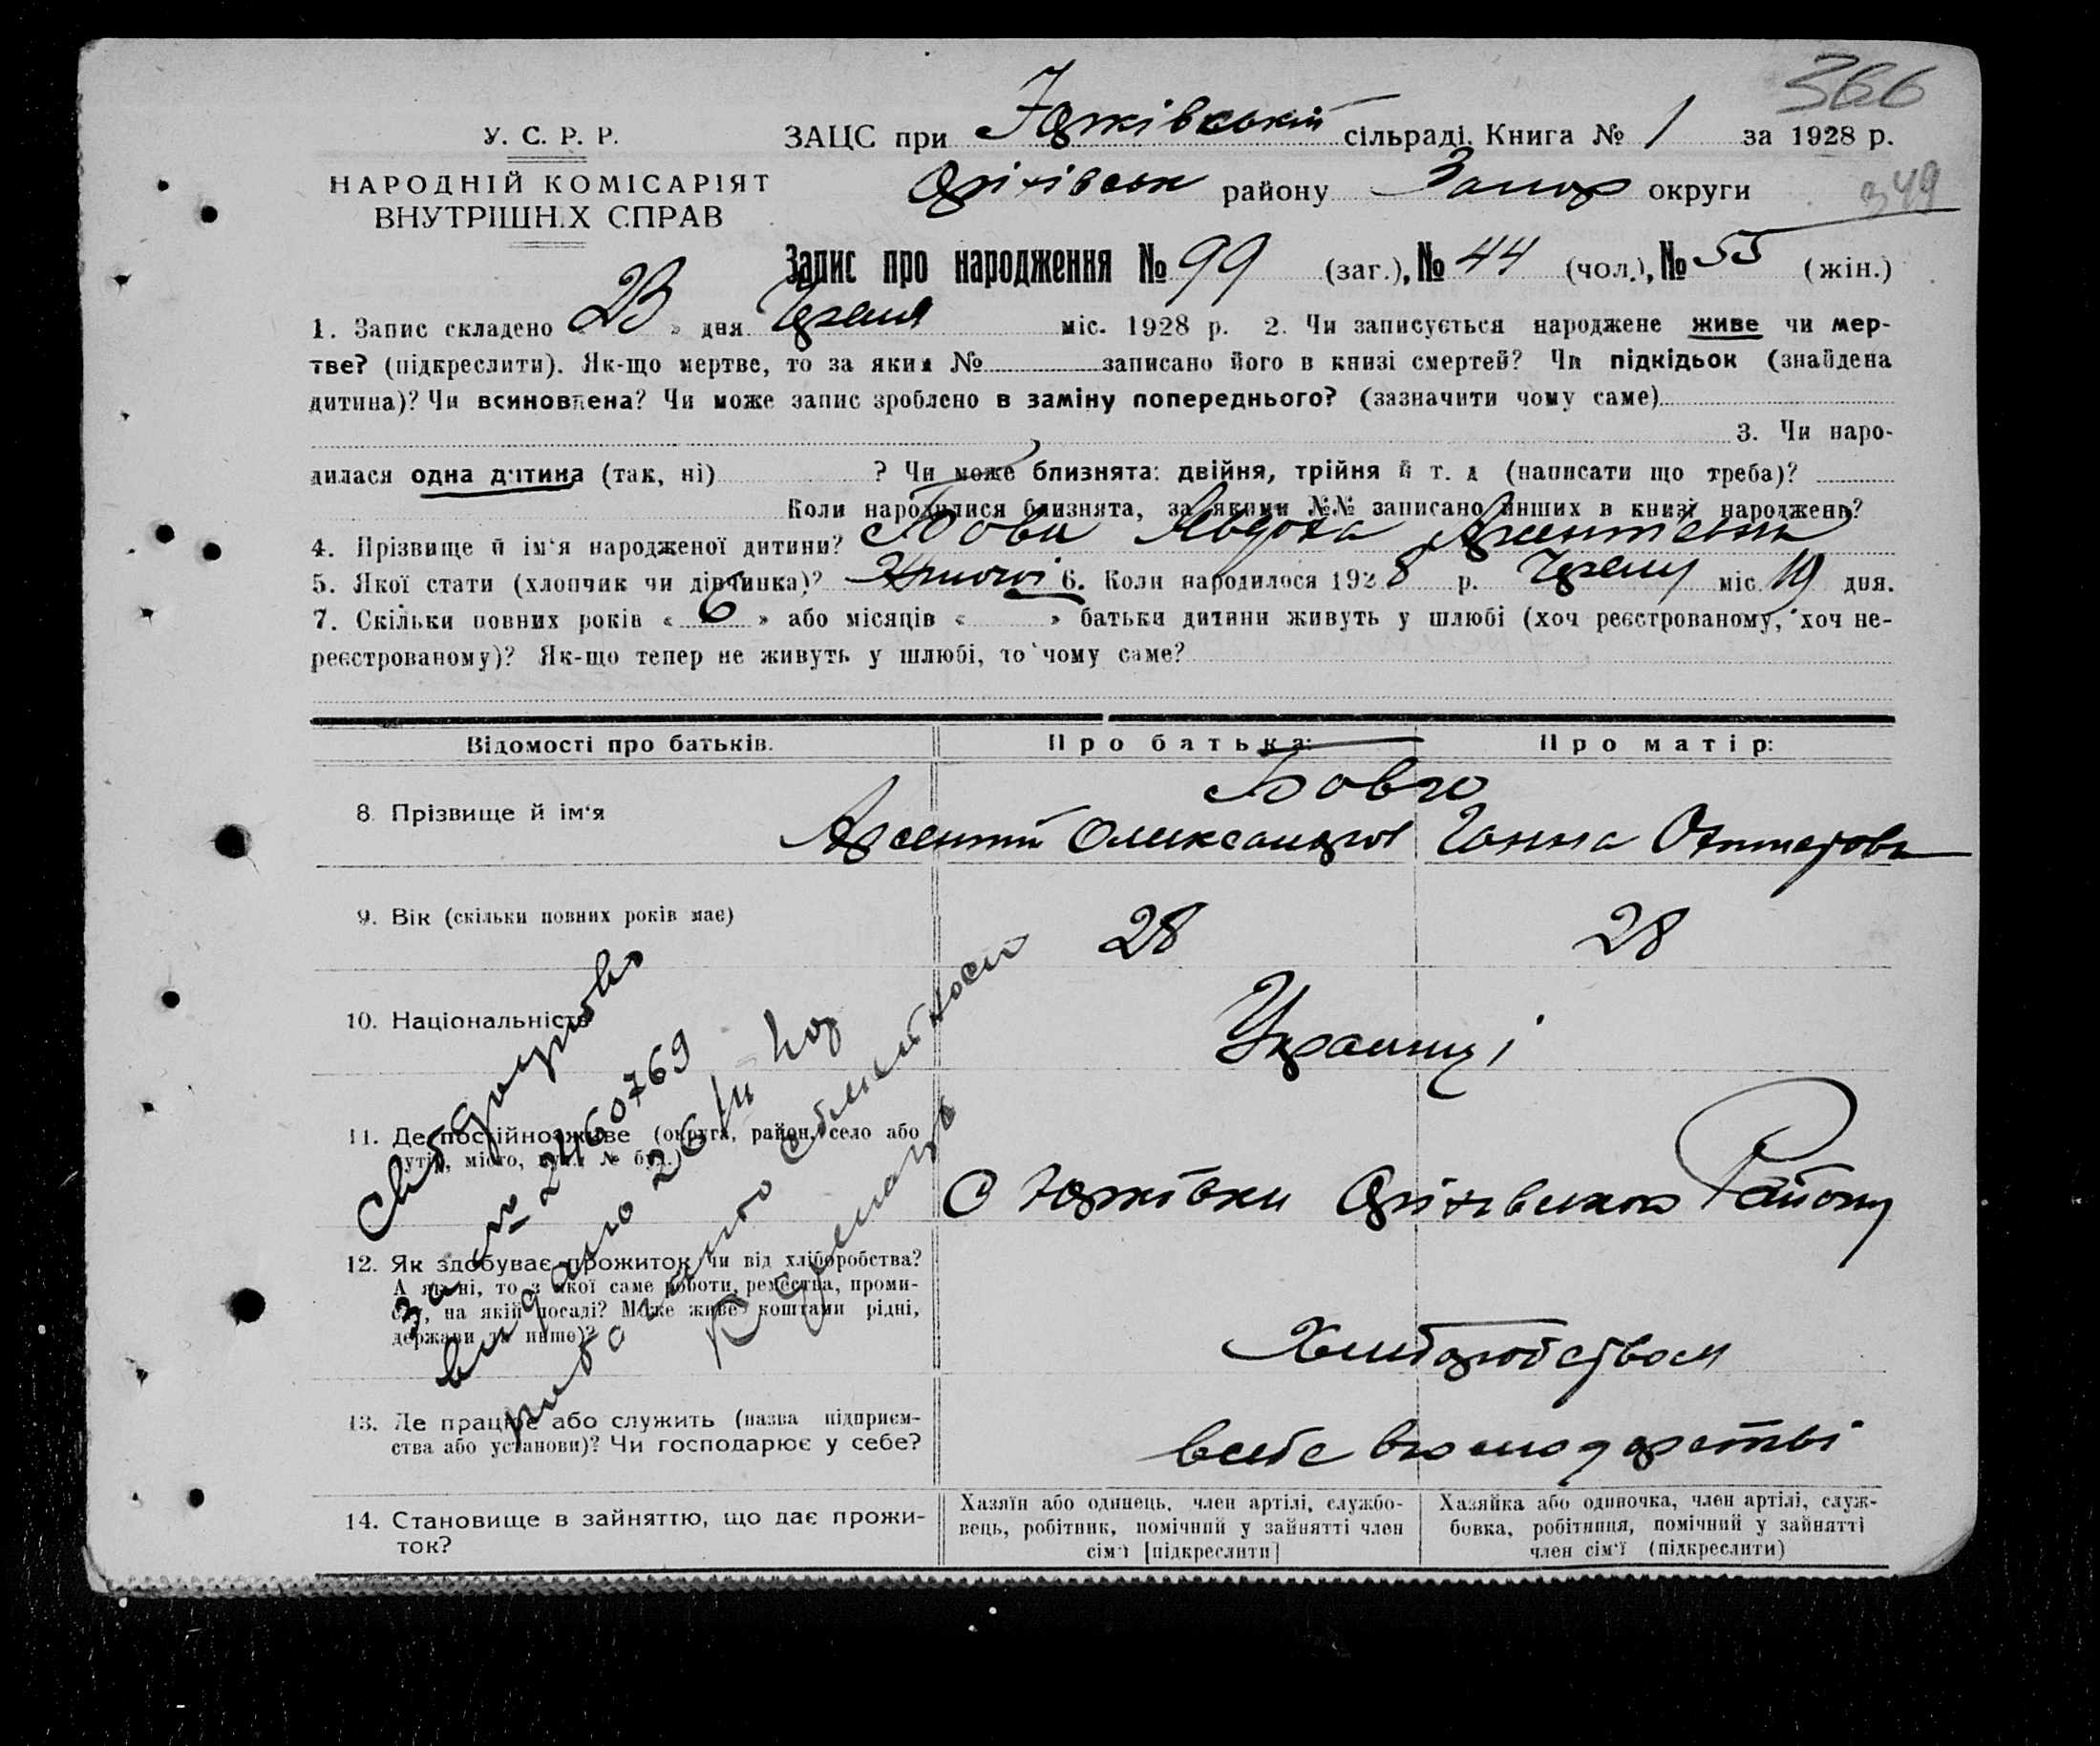 366
У. С. Р. Р.
НАРОДНІЙ КОМІСАРІЯТ
ВНУТРІШНІХ СПРАВ
ЗАЦС при Юрківській сільраді. Книга № 1 за 1928 р.
Оріхівськ району Запор округи
349
Запис про народження № 99 (заг.), № 44 (чол.), № 55 (жін.)
1. Запис складено « 23 » дня Червня міс. 1928 р. 2. Чи записується народжене живе чи мер-
тве? (підкреслити). Як-що мертве, то за яким № записано його в книзі смертей? Чи підкідьок (знайдена
дитина)? Чи всиновлена? Чи може запис зроблено в заміну попереднього? (зазначити чому саме)
3. Чи наро-
дилася одна дитина (так, ні) ? Чи може близнята: двійня, трійня й т. д (написати що треба)?
Коли народилися близнята, за якими №№ записано інших в книзі народжень?
4. Прізвище й ім'я народженої дитини? Бовш Явдоха Арсентіевна
5. Якої стати (хлопчик чи дівчинка)? Жіночої 6. Коли народилося 1928 р. Червня міс. 19 дня.
7. Скільки повних років « 6 » або місяців « » батьки дитини живуть у шлюбі (хоч реєстрованому, хоч не-
реєстрованому)? Як-що тепер не живуть у шлюбі, то чому саме?
Відомості про батьків. Про батька: Про матір:
8. Прізвище й ім'я
Арсентий Олександров Ганна
9. Вік (скільки повних років має) 28 28
10. Національність Украинці
11. Де постійно живе (округа, район, село або
хутір, місто, вул., № буд.)
С Юрківки Оріхівского Району
12. Як здобуває прожиток чи від хліборобства?
А як ні, то з якої саме роботи, ремества, проми-
слу, на якій посаді? Може живе коштами рідні,
держави та инше)?
Хлиборобством
13. Де працює або служить (назва підприєм-
ства або установи)? Чи господарює у себе?
всебе вгосподарстві
14. Становище в зайняттю, що дає прожи-
ток?
Хазяїн або одинець, член артілі, службо-
вець, робітник, помічний у зайнятті член
сім'ї [підкреслити]
Хазяйка або одиночка, член артілі, служ-
бовка, робітниця, помічний у зайнятті
член сім'ї (підкреслити)
за № 2460769
видано 26/II